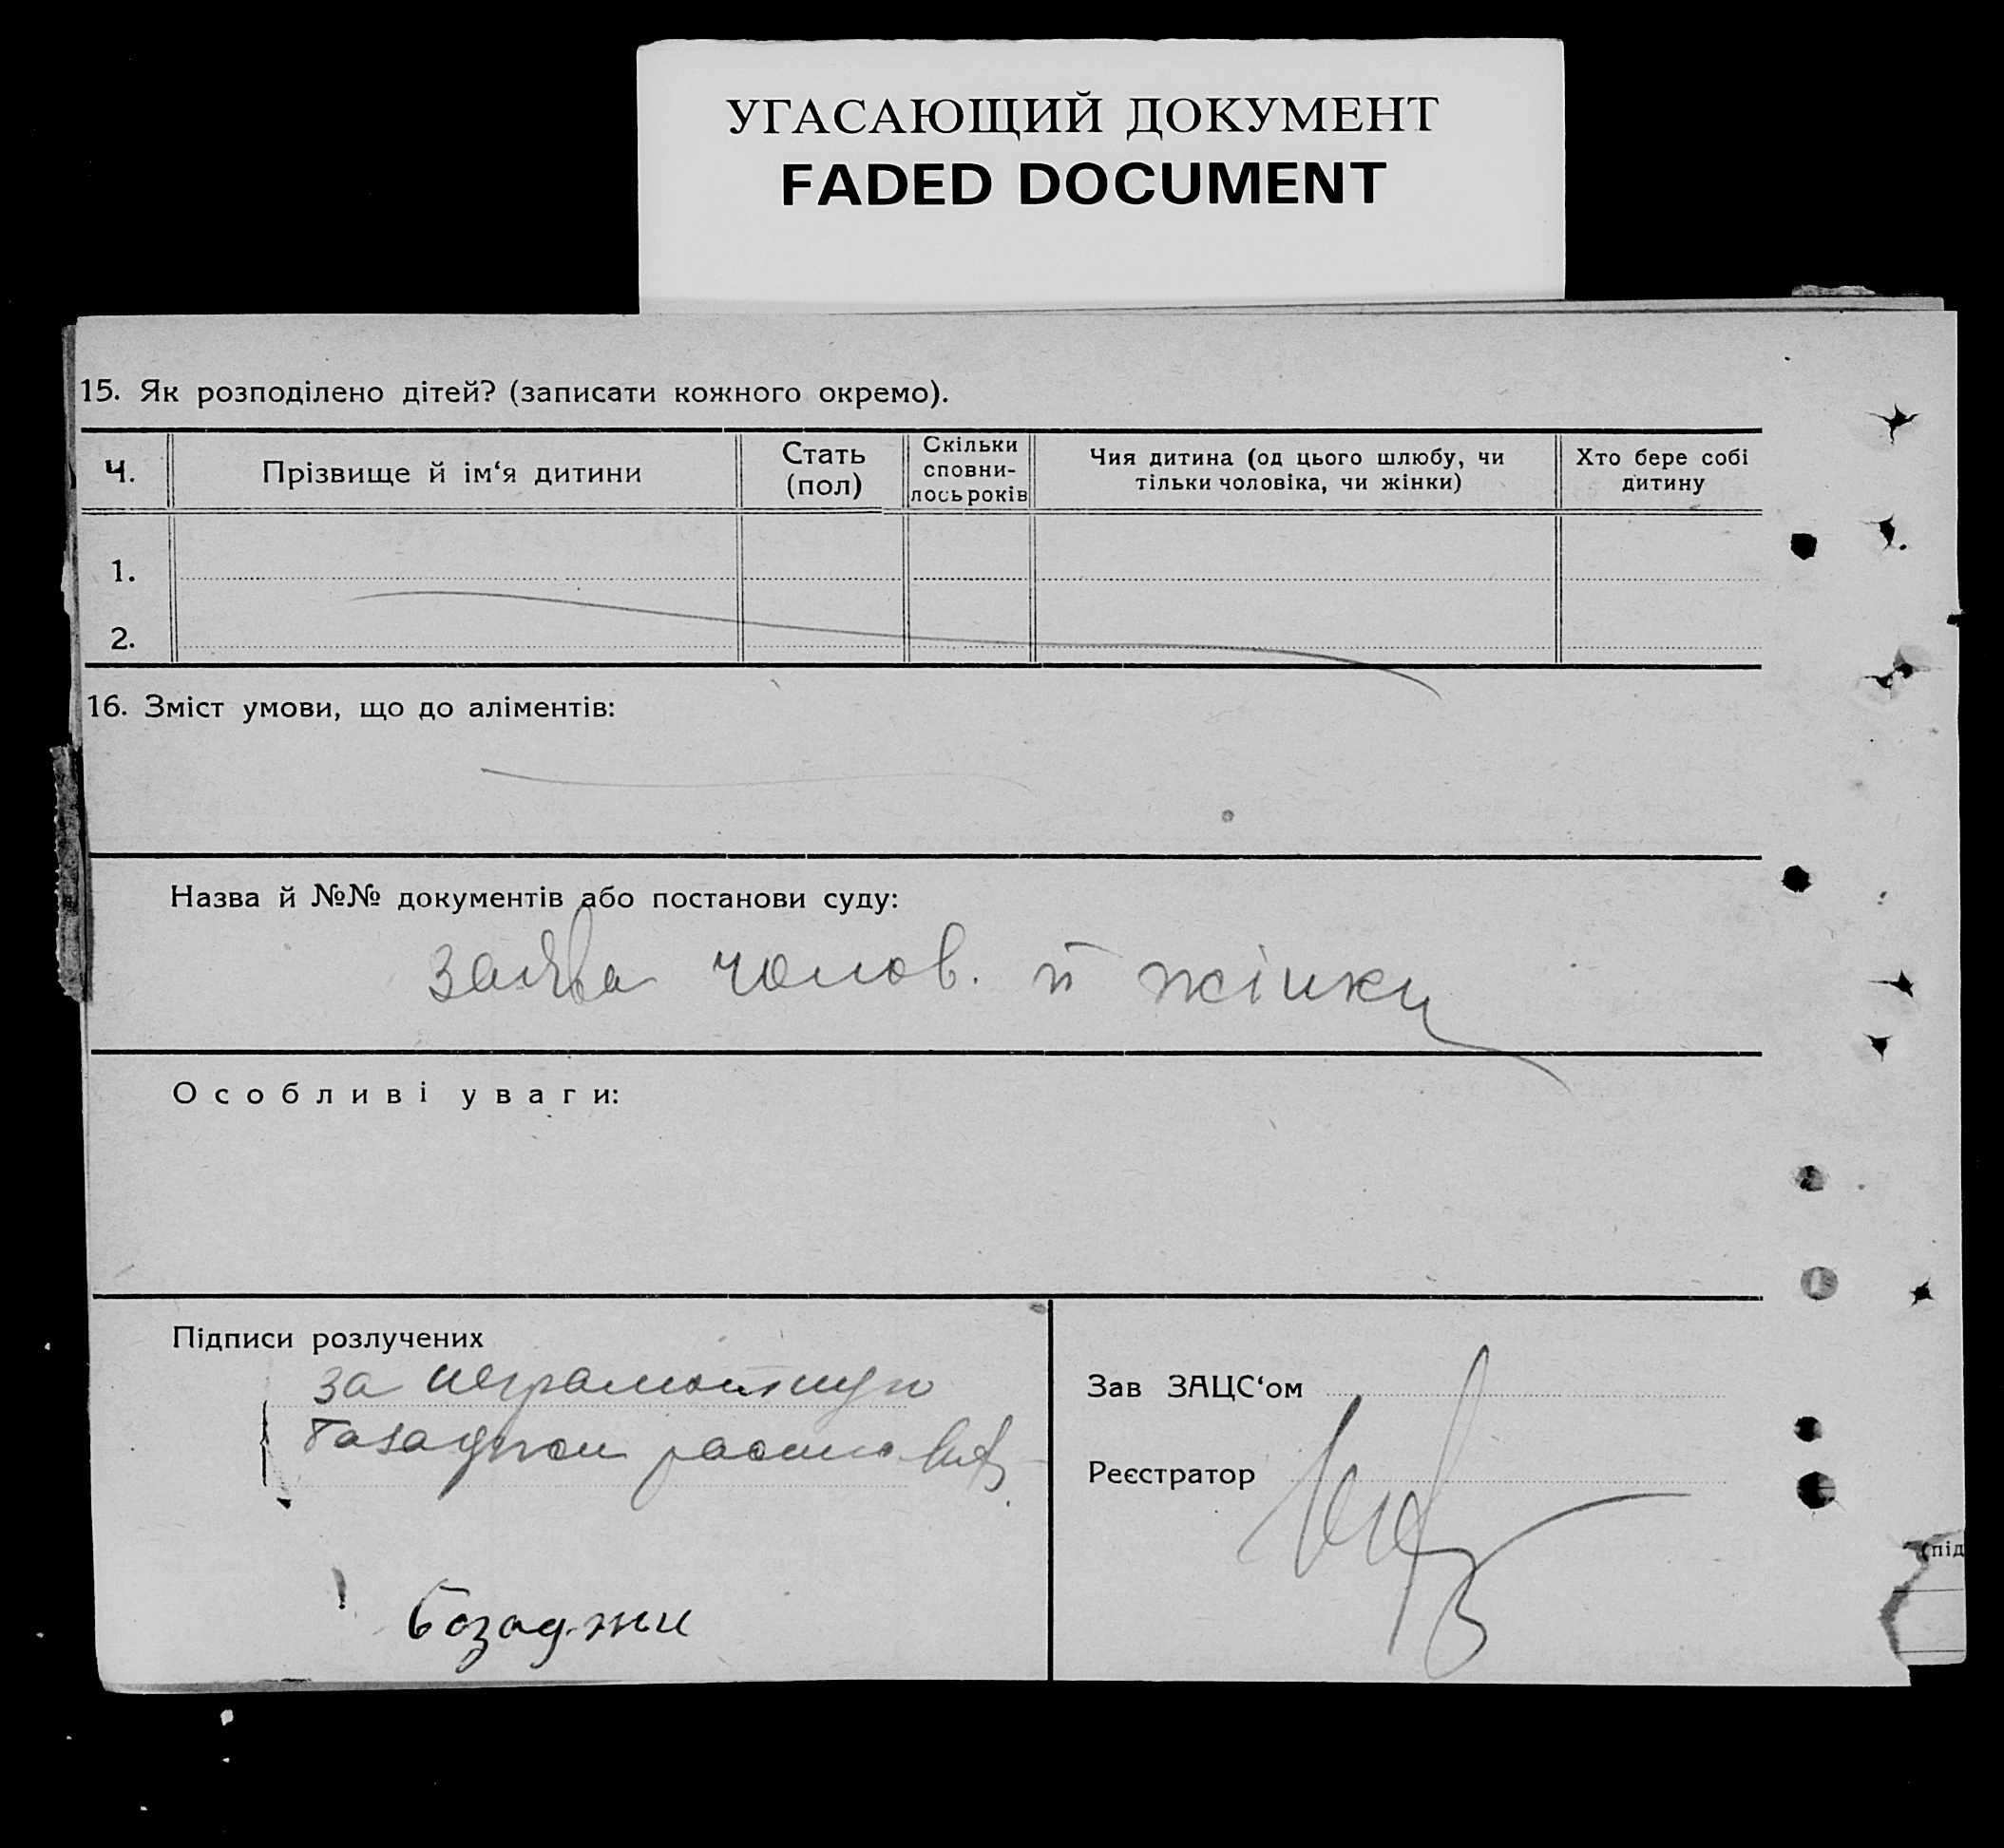 УГАСАЮЩИЙ ДОКУМЕНТ
FADED DOCUMENT
15. Як розподілено дітей? (записати кожного окремо).
Ч.
Прізвище й ім‘я дитини
Стать
(пол)
Скільки
сповни-
лось років
Чия дитина (од цього шлюбу, чи
тільки чоловіка, чи жінки)
Хто бере собі
дитину
1.
2.
16. Зміст умови, що до аліментів:
Назва й №№ документів або постанови суду:
заява чолов. й жінки
Особливі уваги:
Підписи розлучених
за неграмотную
Зав ЗАЦС‘ом
Реєстратор
Бозаджи
(під